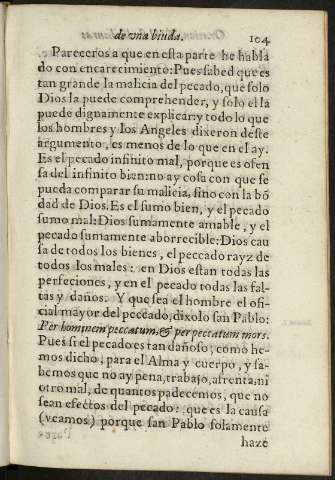 de vna biuda. 104
Pareceros a que en esta parte he habla
do con encarecimiento: Pues sabed que es
tan grande la malicia del pecado, que solo
Dios la puede comprehender, y solo el la
puede dignamente explicar: y todo lo que
los hombres y los Angeles dixeron deste
argumento, es menos de lo que en el ay.
Es el pecado infinito mal, porque es ofen
sa del infinito bien: no ay cosa con que se
pueda comparar su malicia, sino con la bõ
dad de Dios. Es el sumo bien, y el pecado
sumo mal: Dios sumamente amable, y el
pecado sumamente aborrecible: Dios cau
sa de todos los bienes, el pecado rayz de
todos los males: en Dios estan todas las
perfeciones, y en el pecado todas las fal-
tas y daños. Y que sea el hombre el ofi-
cial mayor del pecado, dixolo san Pablo:
Per hominem peccatum, & per peccatum mors.
Pues si el pecado es tan dañoso, como he-
mos dicho, para el Alma y cuerpo, y sa-
bemos que no ay pena, trabajo, afrenta, ni
otro mal, de quantos padecemos, que no
sean efectos del pecado: que es la causa
(veamos) porque san Pablo solamente
haze